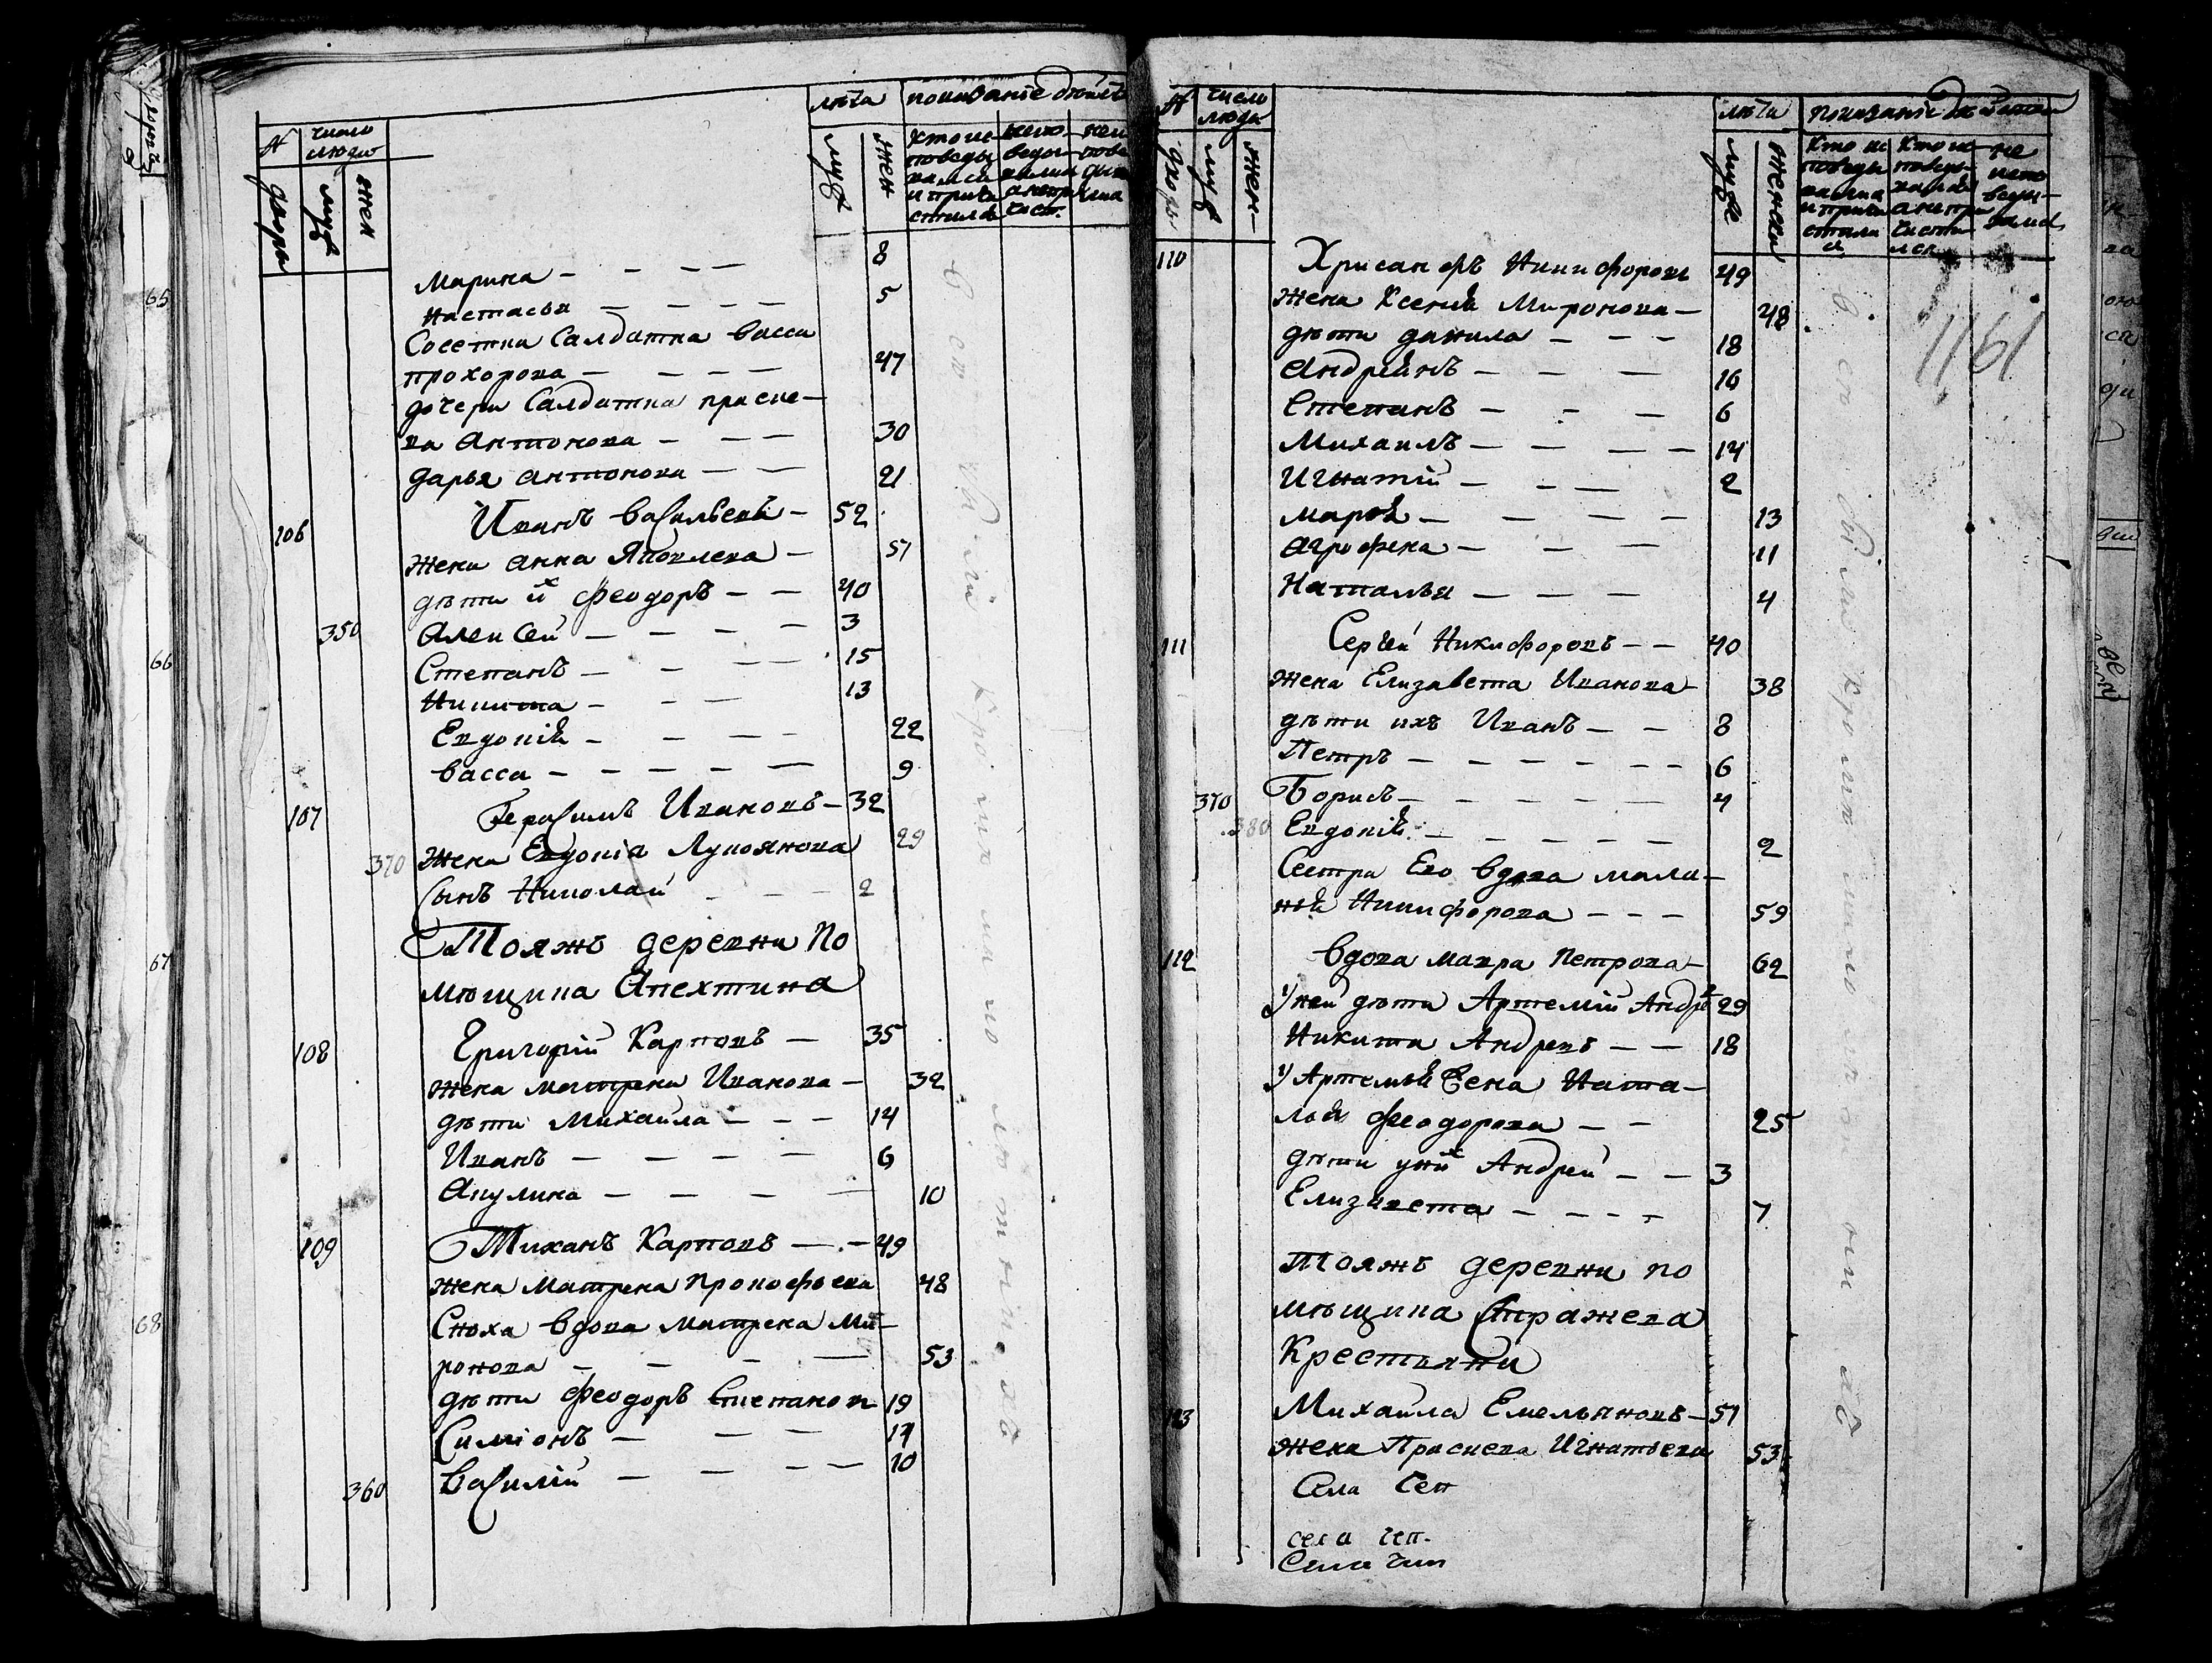 № число людей
лѣта показаніе дѣйств
двори
муж
жен
муж
жен
кто ис
поведы
вались
и прича
стилсѧ
Марина — — — 8
Настасья — — — 5
Соседка Салдатка Васса
Прохорова — — — 47
дочери Салдатка праско-
ва Антонова — — — 30
дарья Антонова — — 21
106 Иванъ Васильевъ — 52
жена Анна Яковлева — 51
дѣти и́х Феодоръ — — 40
350 Алексей — — — — 3
Степанъ — — — — 15
Никита — — — 13
Евдокія — — — — 22
Васса — — — — — 9
107 Герасимъ Ивановъ — 32
370 Жена Евдокіа Лукоянова 29
Сынъ Николай — — — 2
Тояжъ деревни по
мѣщика Апехтина
108 Григорій Карповъ — 35
жена матрена Иванова — 32
дѣти Михаила — — — 14
Иванъ — — — — 6
Акулина — — — — 10
109 Тиханъ Карповъ — — 49
жена Матрена Прокофьева 48
Сноха вдова Матрена Ми-
ронова — — — — 53
дѣти Феодоръ Степанов 19
Симіонъ — — — — 14
360 Василій — — — — 10
№ число люди
лѣта показаніе
двори
муж
жен
муж
женск
кто ис
поведы
вались
и прича
стили
сѧ
кто ис
поведы-
вались
а не при
части
лсѧ
не
испо
веды-
вались
1161
110 Хрисанфъ Никифоровъ 49
Жена Ксенія Миронова — 48
дѣти данила — — — 18
Андреянъ — — — 16
Степанъ — — — 6
Михаилъ — — — — 14
Игнатій — — — 2
Марѳа — — — — 13
Агрофена — — — 11
Наталья — — — 4
111 Сергѣй Никифоровъ — — 40
жена Елизавета Иванова — 38
дѣти ихъ Иванъ — — 8
Петръ — — — — — — 6
370 Борисъ — — — — — 4
380 Евдокія — — — — — 2
Сестра Его вдова мала-
нья Никифорова — — — 59
112 Вдова мавра Петрова — 62
у ней дѣти Артемій Андре 29
Никита Андреевъ — — 18
у Артемья Жена Ната-
лья Феодорова — — 25
дѣти у них Андрей — — 3
Елизавета — — — — 7
Тояжъ деревни по
мѣщика Стражева
Крестьяни
113 Михаила Емельяновъ — 51
жена Прасковва Игнатьева 53
Села Сен
села чеп.
65
66
67
68